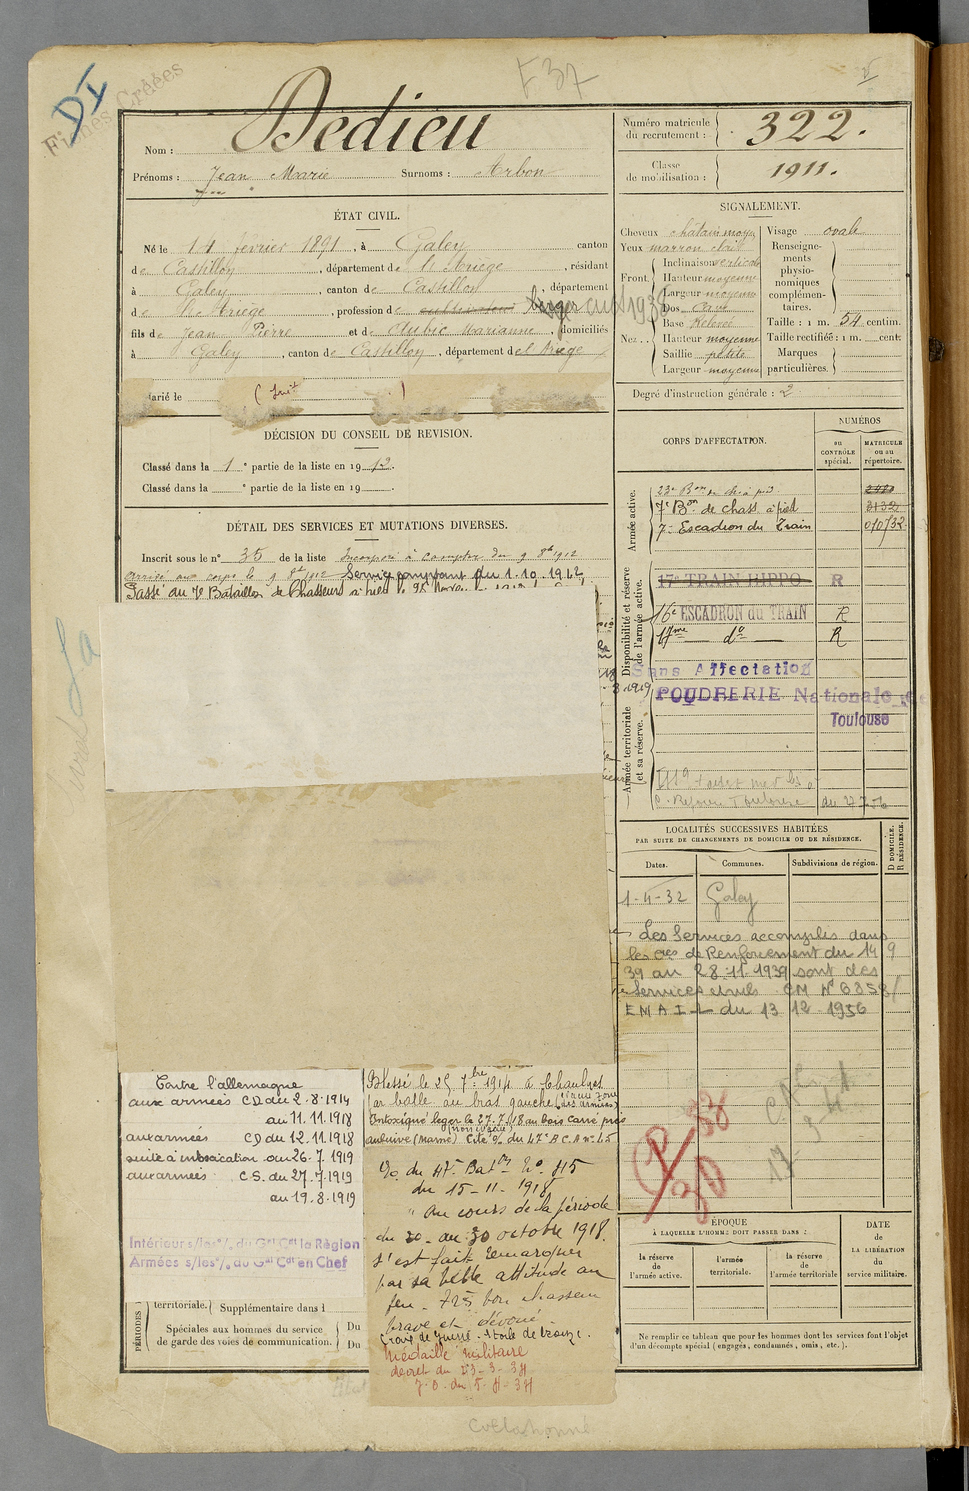 F 37
Fiches Créées
DI
Nom : Dedieu
Prénoms : Jean Marie Surnoms : Arbon
Numéro matricule du recrutement : 322.
Classe de mobilisation : 1911.
ÉTAT CIVIL.
Né le 14 février 1891, à Galey canton
de Castillon, département de l'Ariège, résidant
à Galey, canton de Castillon, département
de l'Ariège, profession de cultivateur berger cult 1938
fils de Jean Pierre et de Aubic Marianne, domiciliés
à Galey, canton de Castillon, département de l'Ariège
Marié le
DÉCISION DU CONSEIL DE REVISION.
Classé dans la 1e partie de la liste en 1912.
Classé dans la e partie de la liste en 19 .
DÉTAIL DES SERVICES ET MUTATIONS DIVERSES.
Inscrit sous le n° 35 de la liste Incorporé à compter du 9 8bre 1912
arrivé au corps le 9 8bre 1912 Service comptant du 1.10.1912,
Passé au 7e Bataillon de Chasseurs à pied le
SIGNALEMENT.
Cheveux châtain moyen
Yeux marron clair
Front Inclinaison verticale
Hauteur moyenne
Largeur moyenne
Nez Dos Cave
Base Relevée
Hauteur moyenne
Saillie petite
Largeur moyenne
Visage ovale
Renseignements physionomiques complémentaires.
Taille : 1 m. 54 centim.
Taille rectifiée : 1 m. cent.
Marques particulières.
Degré d'instruction générale : 2
CORPS D'AFFECTATION.
NUMÉROS
au CONTRÔLE spécial.
MATRICULE ou au répertoire.
Armée active.
23e Bon de ch. à pied
7e Bon de chass. à pied 3132
7e Escadron du Train 010732
Disponibilité et réserve de l'armée active.
17e TRAIN HIPPO R
16e ESCADRON du TRAIN R
17me do R
Sans Affectation
POUDRERIE Nationale de
Toulouse
Armée territoriale et sa réserve.
LOCALITÉS SUCCESSIVES HABITÉES
PAR SUITE DE CHANGEMENTS DE DOMICILE OU DE RÉSIDENCE.
D DOMICILE. R RÉSIDENCE.
Dates. Communes. Subdivisions de région.
1-4-32 Galey
Les Services accomplis dans
les cies de Renforcement du 14 9
39 au 28.11.1939 sont des
Services civils CM N° 6358/
EMAIL du 13 12 1956
P/30
Contre l'allemagne
aux armées CD du 2.8.1914
au 11.11.1918
aux armées CD du 12.11.1918
suite à intoxication au 26.7.1919
aux armées C.S. du 27.7.1919
au 19.8.1919
Intérieur s/les o/ du Gal Cdt la Région
Armées s/les o/ du Gal Cdt en Chef
Blessé le 25 7bre 1914 à Chaulnes
par balle au bras gauche
Intoxiqué leger le 27.7.18 au bois carré près
auberive (Marne) Cité o/ du 47e BCA n° 45
o/o du 47e Baton N° 115
du 15-11-1918
" Au cours de la période
du 20 au 30 octobre 1918.
s'est fait remarquer
par sa belle attitude au
feu. Très bon chasseur
brave et dévoué.
Croix de guerre. Etoile de bronze.
Médaille militaire
décret du 23-3-34
J.O. du 5-4-34
PÉRIODES
territoriale. Supplémentaire dans l
Spéciales aux hommes du service
de garde des voies de communication.
Du
Du
ÉPOQUE
À LAQUELLE L'HOMME DOIT PASSER DANS :
la réserve de l'armée active.
l'armée territoriale.
la réserve de l'armée territoriale
DATE de LA LIBÉRATION du service militaire.
Ne remplir ce tableau que pour les hommes dont les services font l'objet
d'un décompte spécial (engagés, condamnés, omis, etc.).